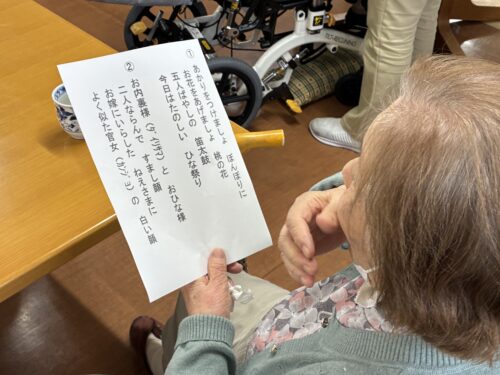 ①
あかりをつけましょ　ぼんぼりに
お花をあげましょ　桃の花
五人ばやしの　笛太鼓
今日はたのしい　ひな祭り
②
お内裏様（ダイリサマ）と　おひな様
二人ならんで　すまし顔
お嫁にいらした　ねえさまに
よく似た官女（カンジョ）の　白い顔